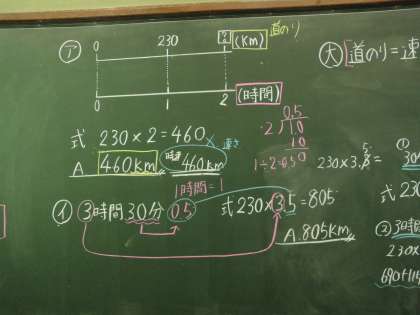 ア
0 230 □ (Km) 道のり
0 1 2 (時間)
式 230×2=460 速さ
A 460km 時速 460km
0.5
2)10
10
1÷2=0.50
1時間=1
イ 3時間30分 0.5
式 230×3.5=805
A. 805km
大 道のり=速
230×3.5=
① 30
式 230
② 3時間
230×
690+115